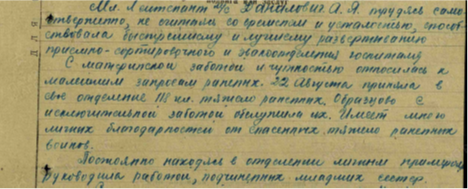 Мл. лейтенант м/с А. Я. трудясь само
отвержено, не считаясь со временем и усталостью, способ
ствовала быстрейшему и лучшему развертыванию
приемно-сортировочного и эвакоотделения госпиталя
С материнской заботой и чуткостью относилась к
малейшим запросам раненых. 22 августа приняла в
свое отделение 118 чел. тяжело раненых. Образцово с
исключительной заботой обслужила их. Имеет много
личных благодарностей от спасенных тяжело раненых
воинов.
Постоянно находясь в отделении личным примером
руководила работой, подчиненных медицинских сестер.
для